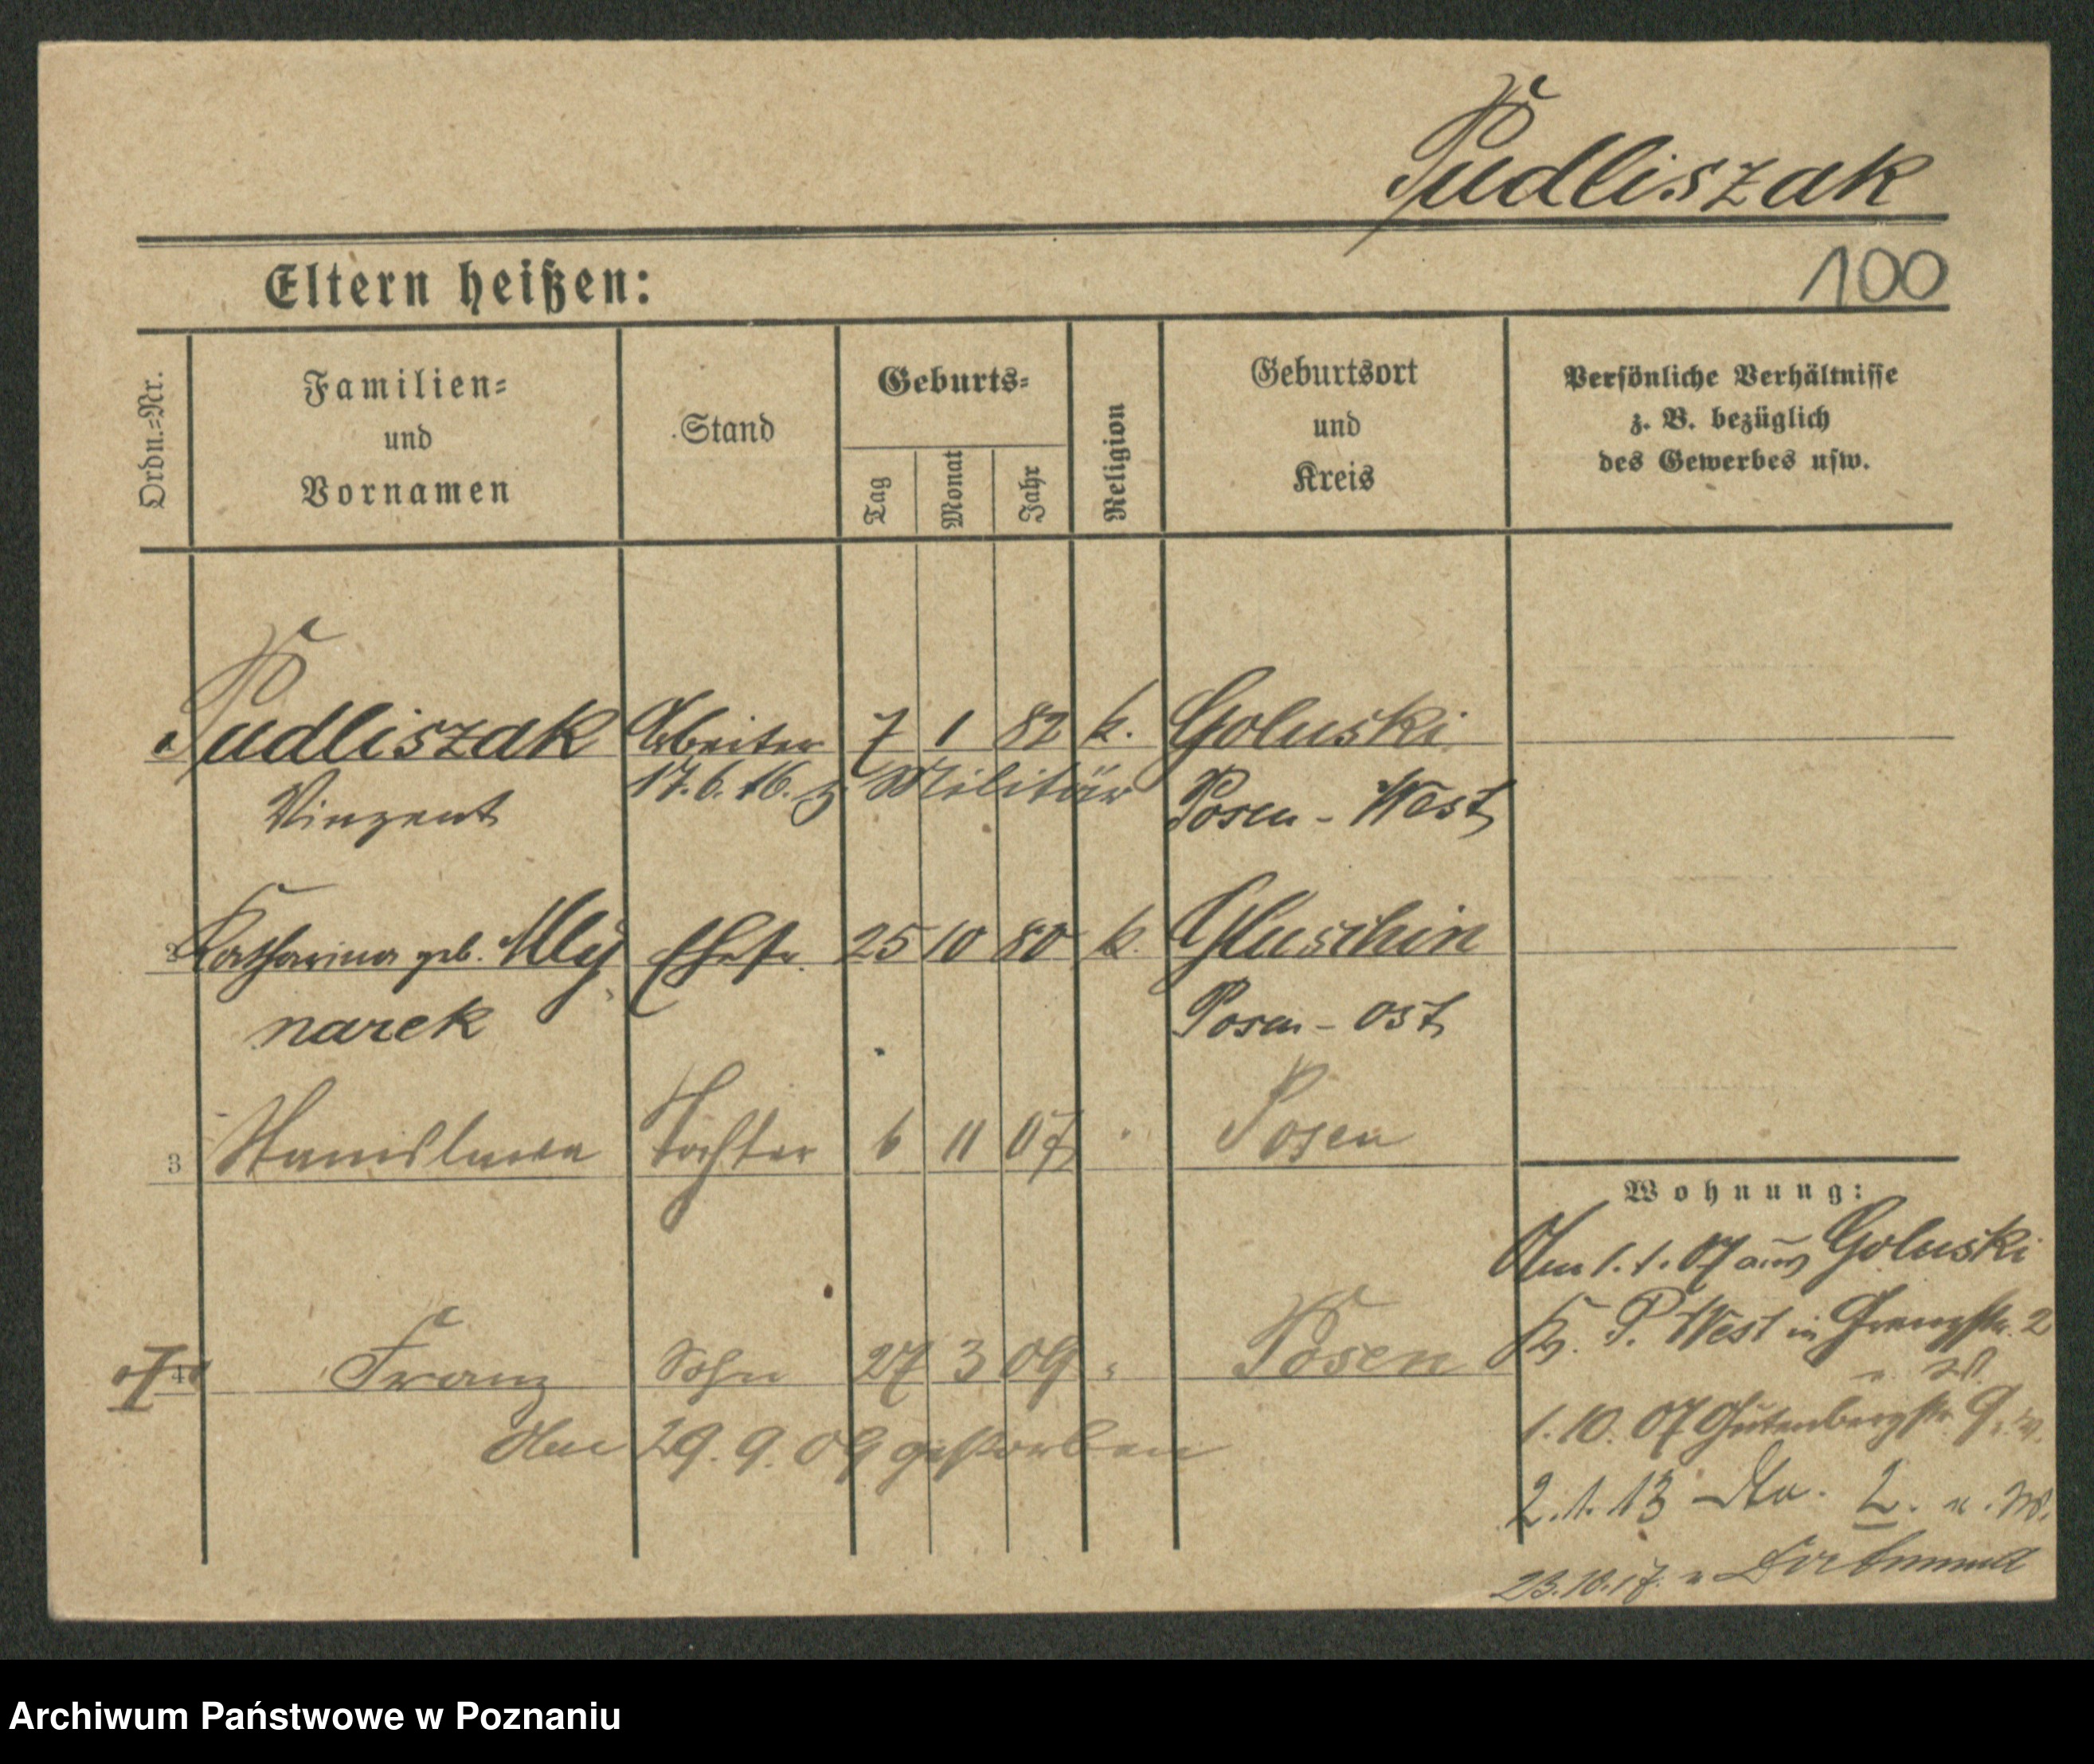 Pudliszak
Eltern heißen:
100
Ordn.-Nr.
Familien-
und
Vornamen
Stand
Geburts-
Tag
Monat
Jahr
Religion
Geburtsort
und
Kreis
Persönliche Verhältnisse
z. B. bezüglich
des Gewerbes usw.
Pudliszak Arbeiter 7 1 82 k. Goluski
17.6.16. z. Militär
Vinzent
Posen - West
2 Katharina geb. Mly Ehefr. 25 10 80 k. Gluschin
narek
Posen - Ost
3 Stanislawa Tochter 6 11 07 " Posen
4 Franz Sohn 27 3 09 " Posen
Am 29.9.09 gestorben
Wohnung:
Am 1.1.07 aus Goluski
Kr. P. West in Grenzstr. 2
1.10.07 Gutenbergstr. 9
2.1.13 - Do. 2. u. W.
23.10.17. n Dortmund
Archiwum Państwowe w Poznaniu